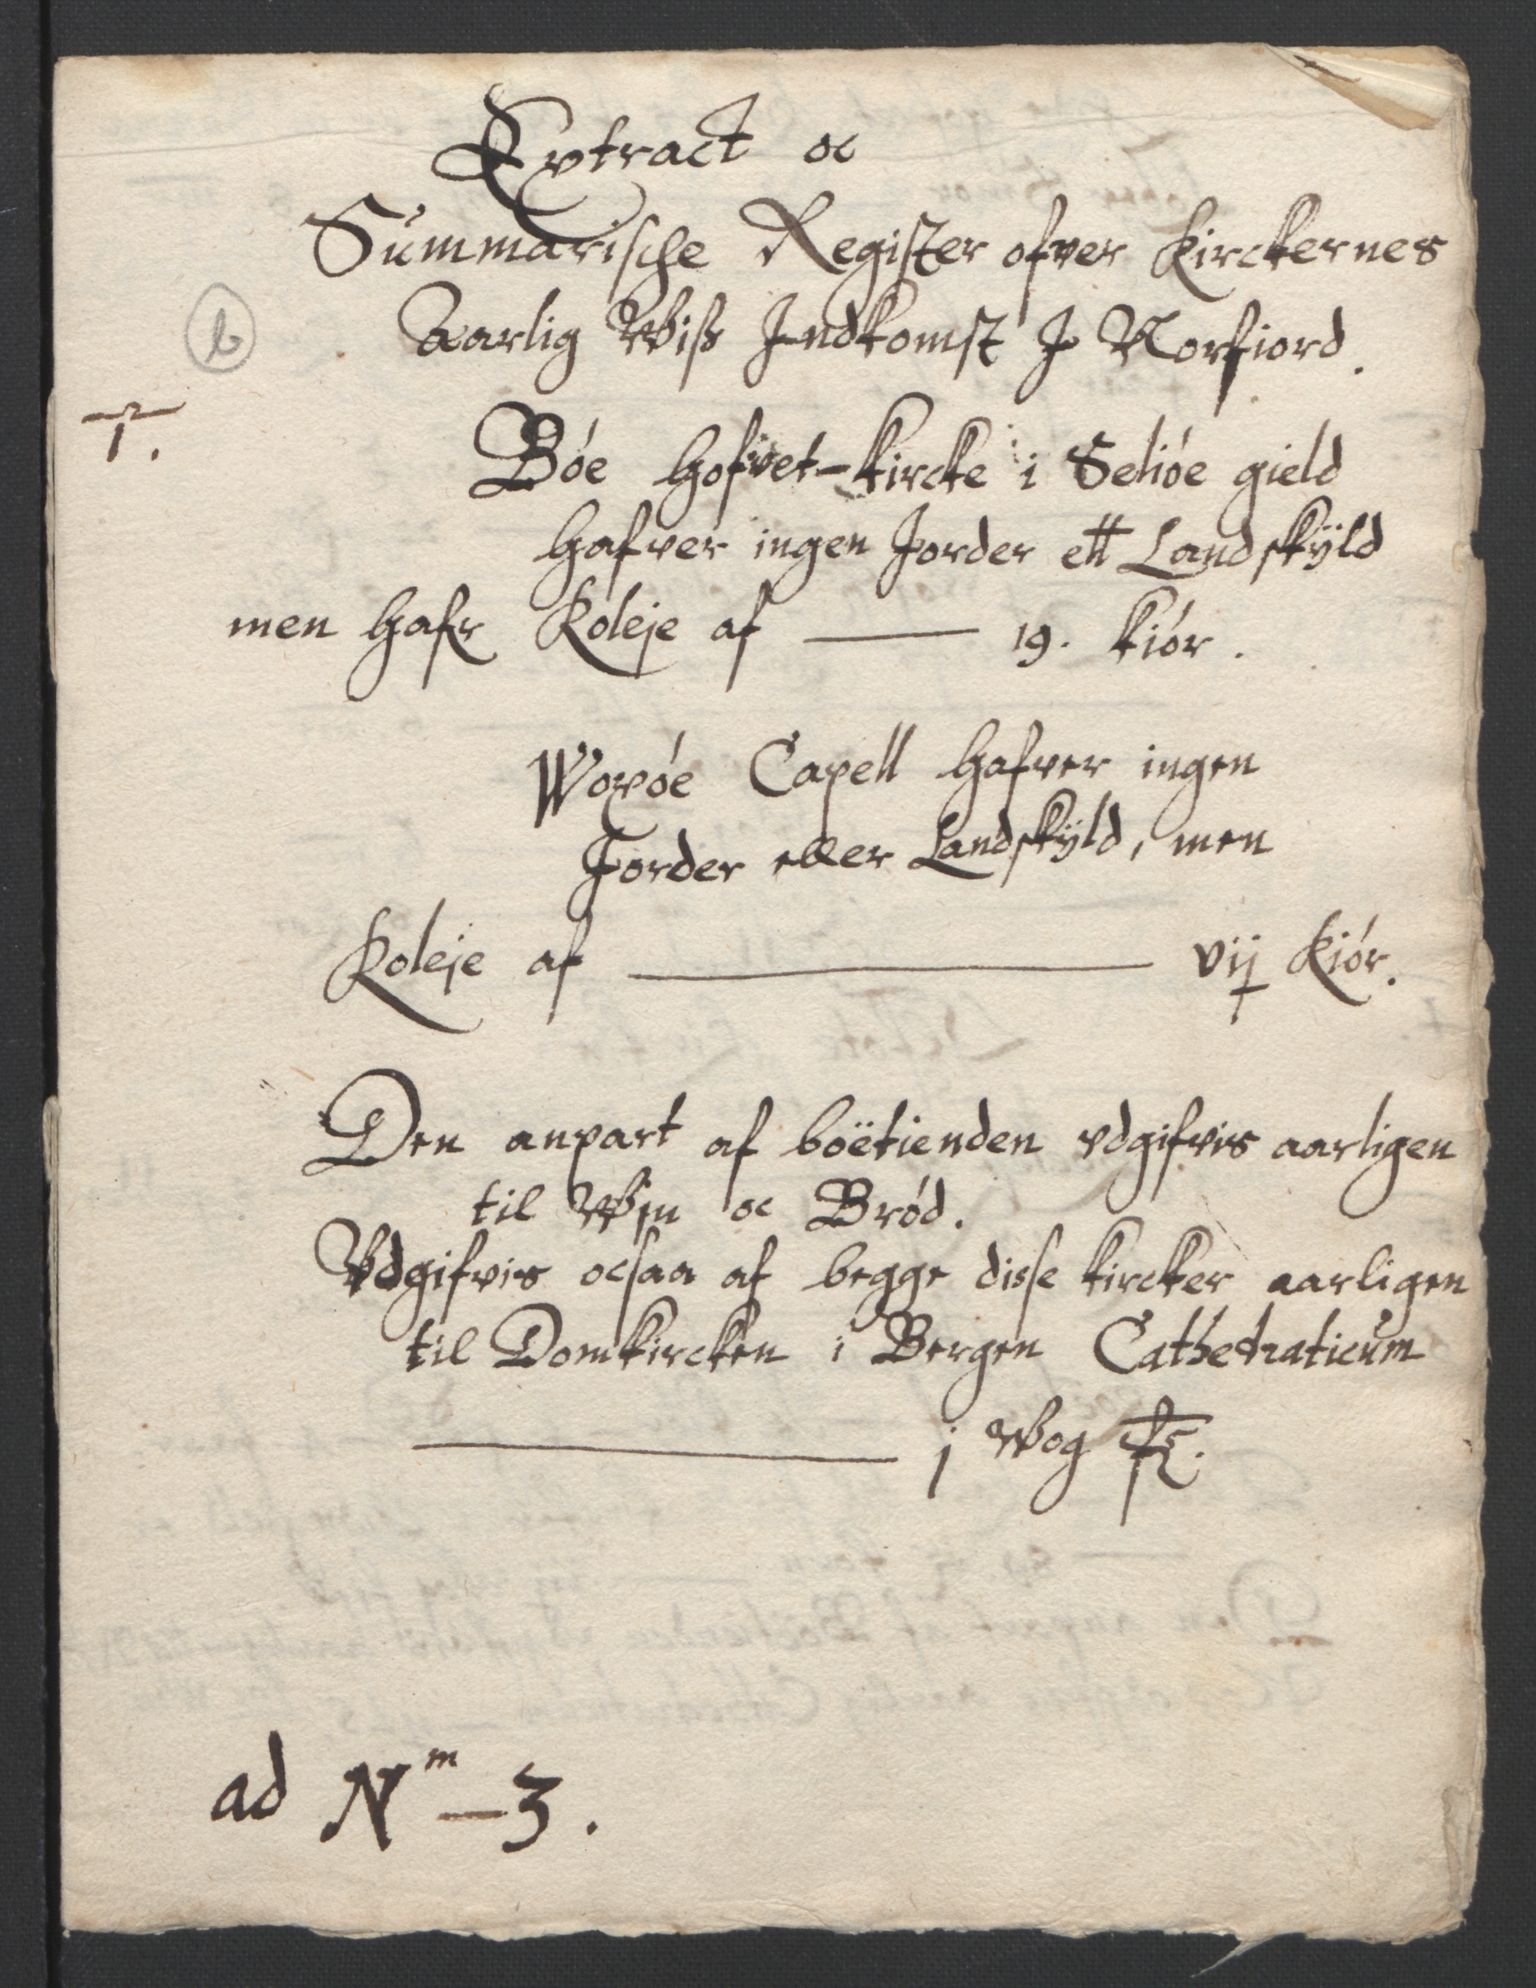 Extract oc
Summarische Register ofver Kirckernes
Aarlig Wiss Indkomst I Norfiord.
b
1.
Bóe hofvet-kircke i Selióe gield
hafver ingen Jorder ell Landskÿld
men hafr Koleje af — 19. kiór.
Woxóe Capell hafver ingen
Jorder eller Landskÿld, men
Koleje af — vij kiór.
Den anpart af boëtienden vdgifvis aarligen
til Wijn oc Bród.
Vdgifvis ocsaa af begge disse kircker aarligen
til Domkircken i Bergen Cathedraticum
— j Wog
ad Nm – 3.